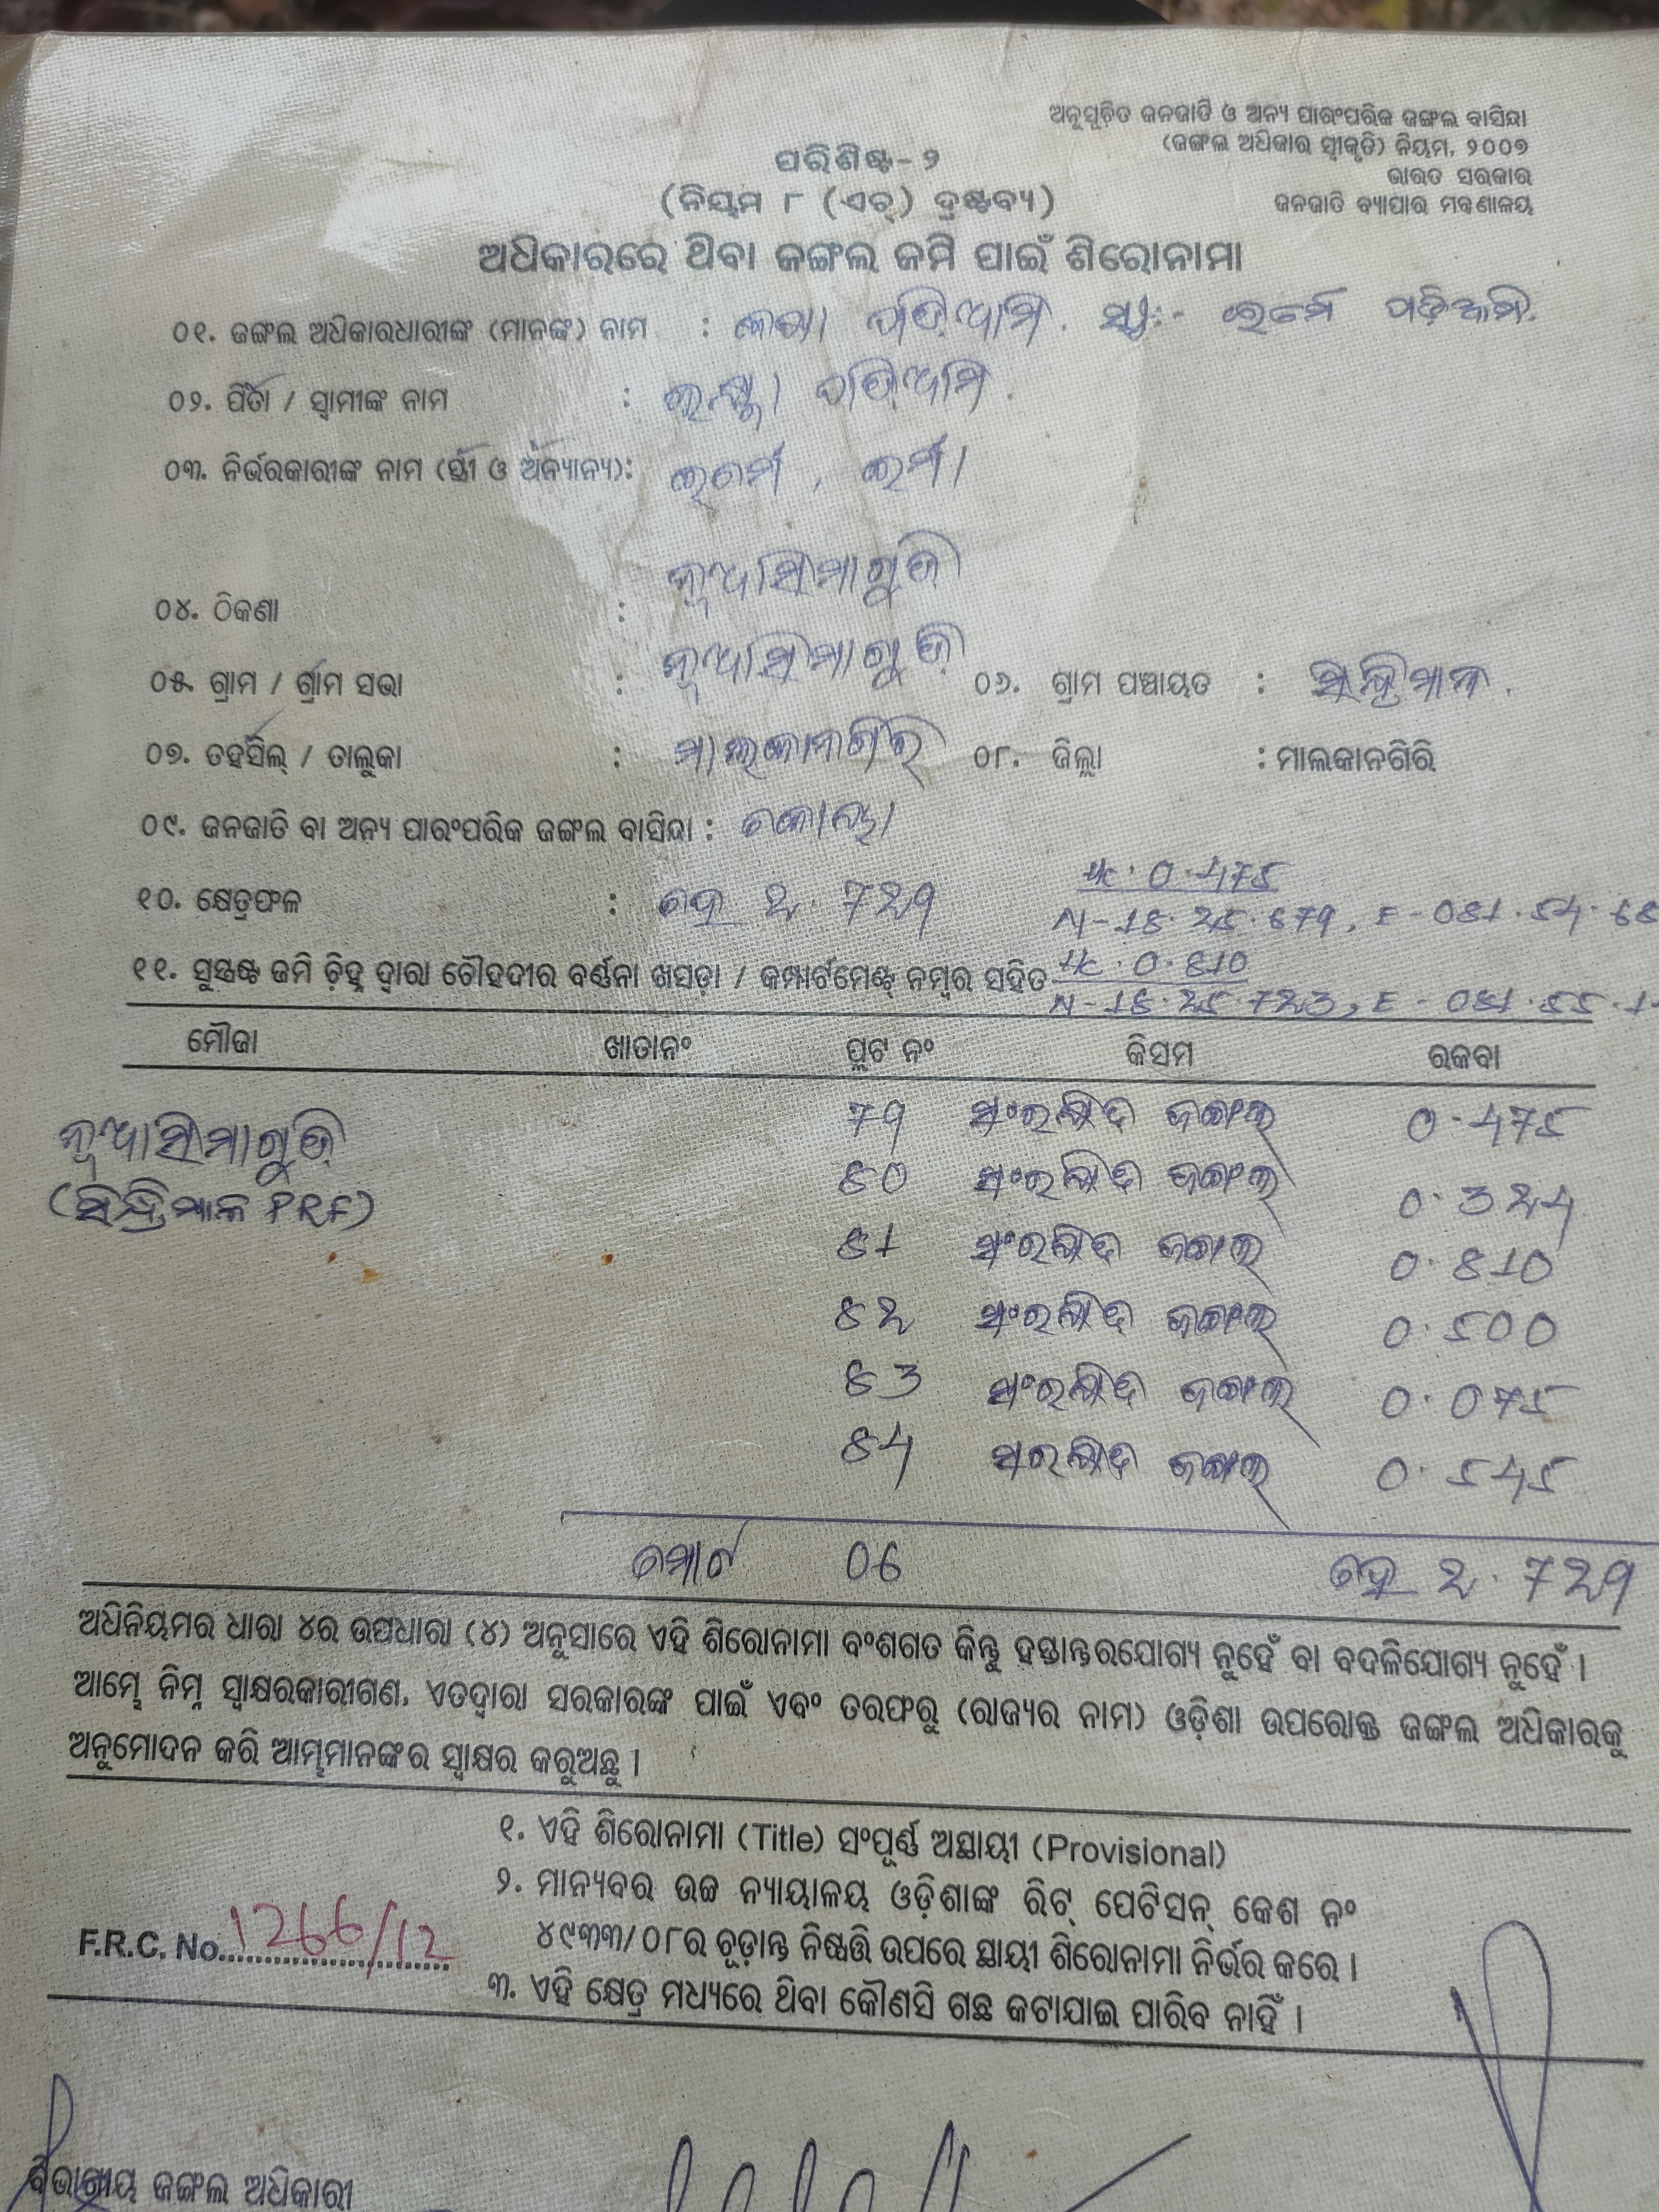 ଅନୁସୂଚିତ ଜନଜାତି ଓ ଅନ୍ୟ ପାରଂପରିକ ଜଙ୍ଗଲ ବାସିନ୍ଦା
(ଜଙ୍ଗଲ ଅଧିକାର ସ୍ୱୀକୃତି) ନିୟମ, ୨୦୦୭
ଭାରତ ସରକାର
ଜନଜାତି ବ୍ୟାପାର ମନ୍ତ୍ରଣାଳୟ
ପରିଶିଷ୍ଟ - ୨
(ନିୟମ ୮ (ଏଚ୍) ଦ୍ରଷ୍ଟବ୍ୟ)
ଅଧିକାରରେ ଥିବା ଜଙ୍ଗଲ ଜମି ପାଇଁ ଶିରୋନାମା
୦୧. ଜଙ୍ଗଲ ଅଧିକାରଧାରୀଙ୍କ (ମାନଙ୍କ) ନାମ : ପଡ଼ିଆମି ପଡ଼ିଆମି.
୦୨. ପିତା / ସ୍ୱାମୀଙ୍କ ନାମ : ପଡ଼ିଆମି.
୦୩. ନିର୍ଭରକାରୀଙ୍କ ନାମ (ସ୍ତ୍ରୀ ଓ ଅନ୍ୟାନ୍ୟ):
୦୪. ଠିକଣା : ନୂଆସୀମାଗୁଡ଼ି
୦୫. ଗ୍ରାମ / ଗ୍ରାମ ସଭା : ନୂଆସୀମାଗୁଡ଼ି ୦୬. ଗ୍ରାମ ପଞ୍ଚାୟତ :
୦୭. ତହସିଲ୍ / ତାଲୁକା : ମାଲକାନଗିରି ୦୮. ଜିଲ୍ଲା : ମାଲକାନଗିରି
୦୯. ଜନଜାତି ବା ଅନ୍ୟ ପାରଂପରିକ ଜଙ୍ଗଲ ବାସିନ୍ଦା : କୋୟା
୧୦. କ୍ଷେତ୍ରଫଳ : ହେ 2.729 Hc. 0.475
N-18.25.679, E-081.54.68
୧୧. ସୁସ୍ପଷ୍ଟ ଜମି ଚିହ୍ନ ଦ୍ୱାରା ଚୌହଦୀର ବର୍ଣ୍ଣନା ଖସଡ଼ା / କମ୍ପାର୍ଟମେଣ୍ଟ୍ ନମ୍ବର ସହିତ Hc. 0.810
N-18.25.723, E-081.55.1
ମୌଜା ଖାତାନଂ ପ୍ଲଟ ନଂ କିସମ ରକବା
ନୂଆସୀମାଗୁଡ଼ି 79 ସଂରକ୍ଷିତ ଜଙ୍ଗଲ 0.475
(ସିନ୍ଧ୍ରିମାଳ PRF) 80 ସଂରକ୍ଷିତ ଜଙ୍ଗଲ 0.324
81 ସଂରକ୍ଷିତ ଜଙ୍ଗଲ 0.810
82 ସଂରକ୍ଷିତ ଜଙ୍ଗଲ 0.500
83 ସଂରକ୍ଷିତ ଜଙ୍ଗଲ 0.075
84 ସଂରକ୍ଷିତ ଜଙ୍ଗଲ 0.545
ମୋଟ 06 ହେ 2.729
ଅଧିନିୟମର ଧାରା ୪ର ଉପଧାରା (୪) ଅନୁସାରେ ଏହି ଶିରୋନାମା ବଂଶଗତ କିନ୍ତୁ ହସ୍ତାନ୍ତରଯୋଗ୍ୟ ନୁହେଁ ବା ବଦଳିଯୋଗ୍ୟ ନୁହେଁ ।
ଆମ୍ଭେ ନିମ୍ନ ସ୍ୱାକ୍ଷରକାରୀଗଣ, ଏତଦ୍ୱାରା ସରକାରଙ୍କ ପାଇଁ ଏବଂ ତରଫରୁ (ରାଜ୍ୟର ନାମ) ଓଡ଼ିଶା ଉପରୋକ୍ତ ଜଙ୍ଗଲ ଅଧିକାରକୁ
ଅନୁମୋଦନ କରି ଆମ୍ଭମାନଙ୍କର ସ୍ୱାକ୍ଷର କରୁଅଛୁ ।
୧. ଏହି ଶିରୋନାମା (Title) ସଂପୂର୍ଣ୍ଣ ଅସ୍ଥାୟୀ (Provisional)
୨. ମାନ୍ୟବର ଉଚ୍ଚ ନ୍ୟାୟାଳୟ ଓଡ଼ିଶାଙ୍କ ରିଟ୍ ପେଟିସନ୍ କେଶ ନଂ
୪୯୩୩/୦୮ର ଚୂଡ଼ାନ୍ତ ନିଷ୍ପତ୍ତି ଉପରେ ସ୍ଥାୟୀ ଶିରୋନାମା ନିର୍ଭର କରେ ।
F.R.C. No. 1266/12
୩. ଏହି କ୍ଷେତ୍ର ମଧ୍ୟରେ ଥିବା କୌଣସି ଗଛ କଟାଯାଇ ପାରିବ ନାହିଁ ।
ବିଭାଗୀୟ ଜଙ୍ଗଲ ଅଧିକାରୀ